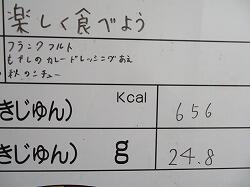 楽しく食べよう
フランクフルト
もやしのカレードレッシングあえ
秋のシチュー
きじゅん) Kcal 656
きじゅん) g 24.8